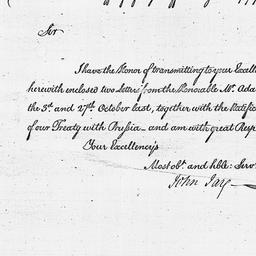 Sir
I have the Honor of transmitting to your Excelle
herewith enclosed two Letters from the Honorable Mr. Ada
the 3d. and 27th October last, together with the Ratific
of our Treaty with Prussia — and am with great Resp
Your Excellency's
Most obt. and hble: Serv
John Jay